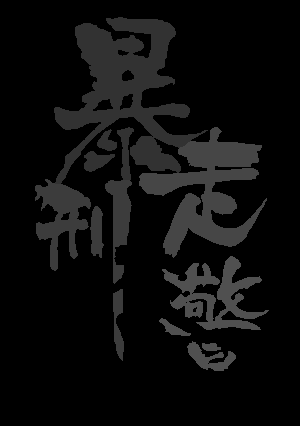 暴走
刑警